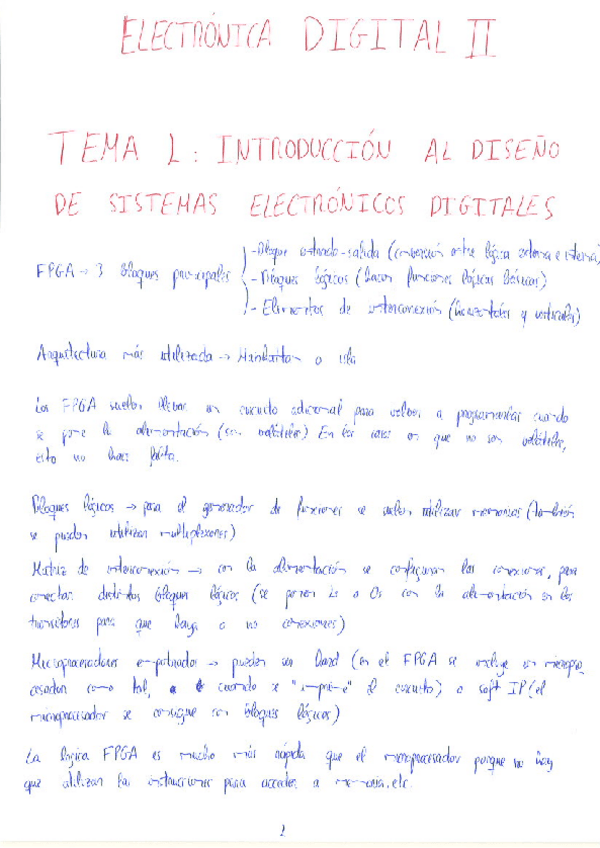 ELECTRÓNICA DIGITAL II
TEMA 1: INTRODUCCIÓN AL DISEÑO
DE SISTEMAS ELECTRÓNICOS DIGITALES
FPGA → 3 bloques principales
- Bloque entrada-salida (conversión entre lógica externa e interna)
- Bloques lógicos (hacen funciones lógicas básicas)
- Elementos de interconexión (horizontales y verticales)
Arquitectura más utilizada → Manhattan o isla
Los FPGA suelen llevar un circuito adicional para volver a programarlas cuando
se pone la alimentación (son volátiles) En los casos en que no son volátiles,
esto no hace falta.
Bloques lógicos → para el generador de funciones se suelen utilizar memorias (también
se pueden utilizar multiplexores)
Matriz de interconexión → con la alimentación se configuran las conexiones, para
conectar distintos bloques lógicos (se ponen 1s o 0s con la alimentación en los
transistores para que haya o no conexiones)
Microprocesadores empotrados → pueden ser hard (en el FPGA se incluye un micropro
cesador como tal, cuando se "imprime" el circuito) o soft IP (el
microprocesador se consigue con bloques lógicos)
La lógica FPGA es mucho más rápida que el microprocesador porque no hay
que utilizar las instrucciones para acceder a memoria, etc.